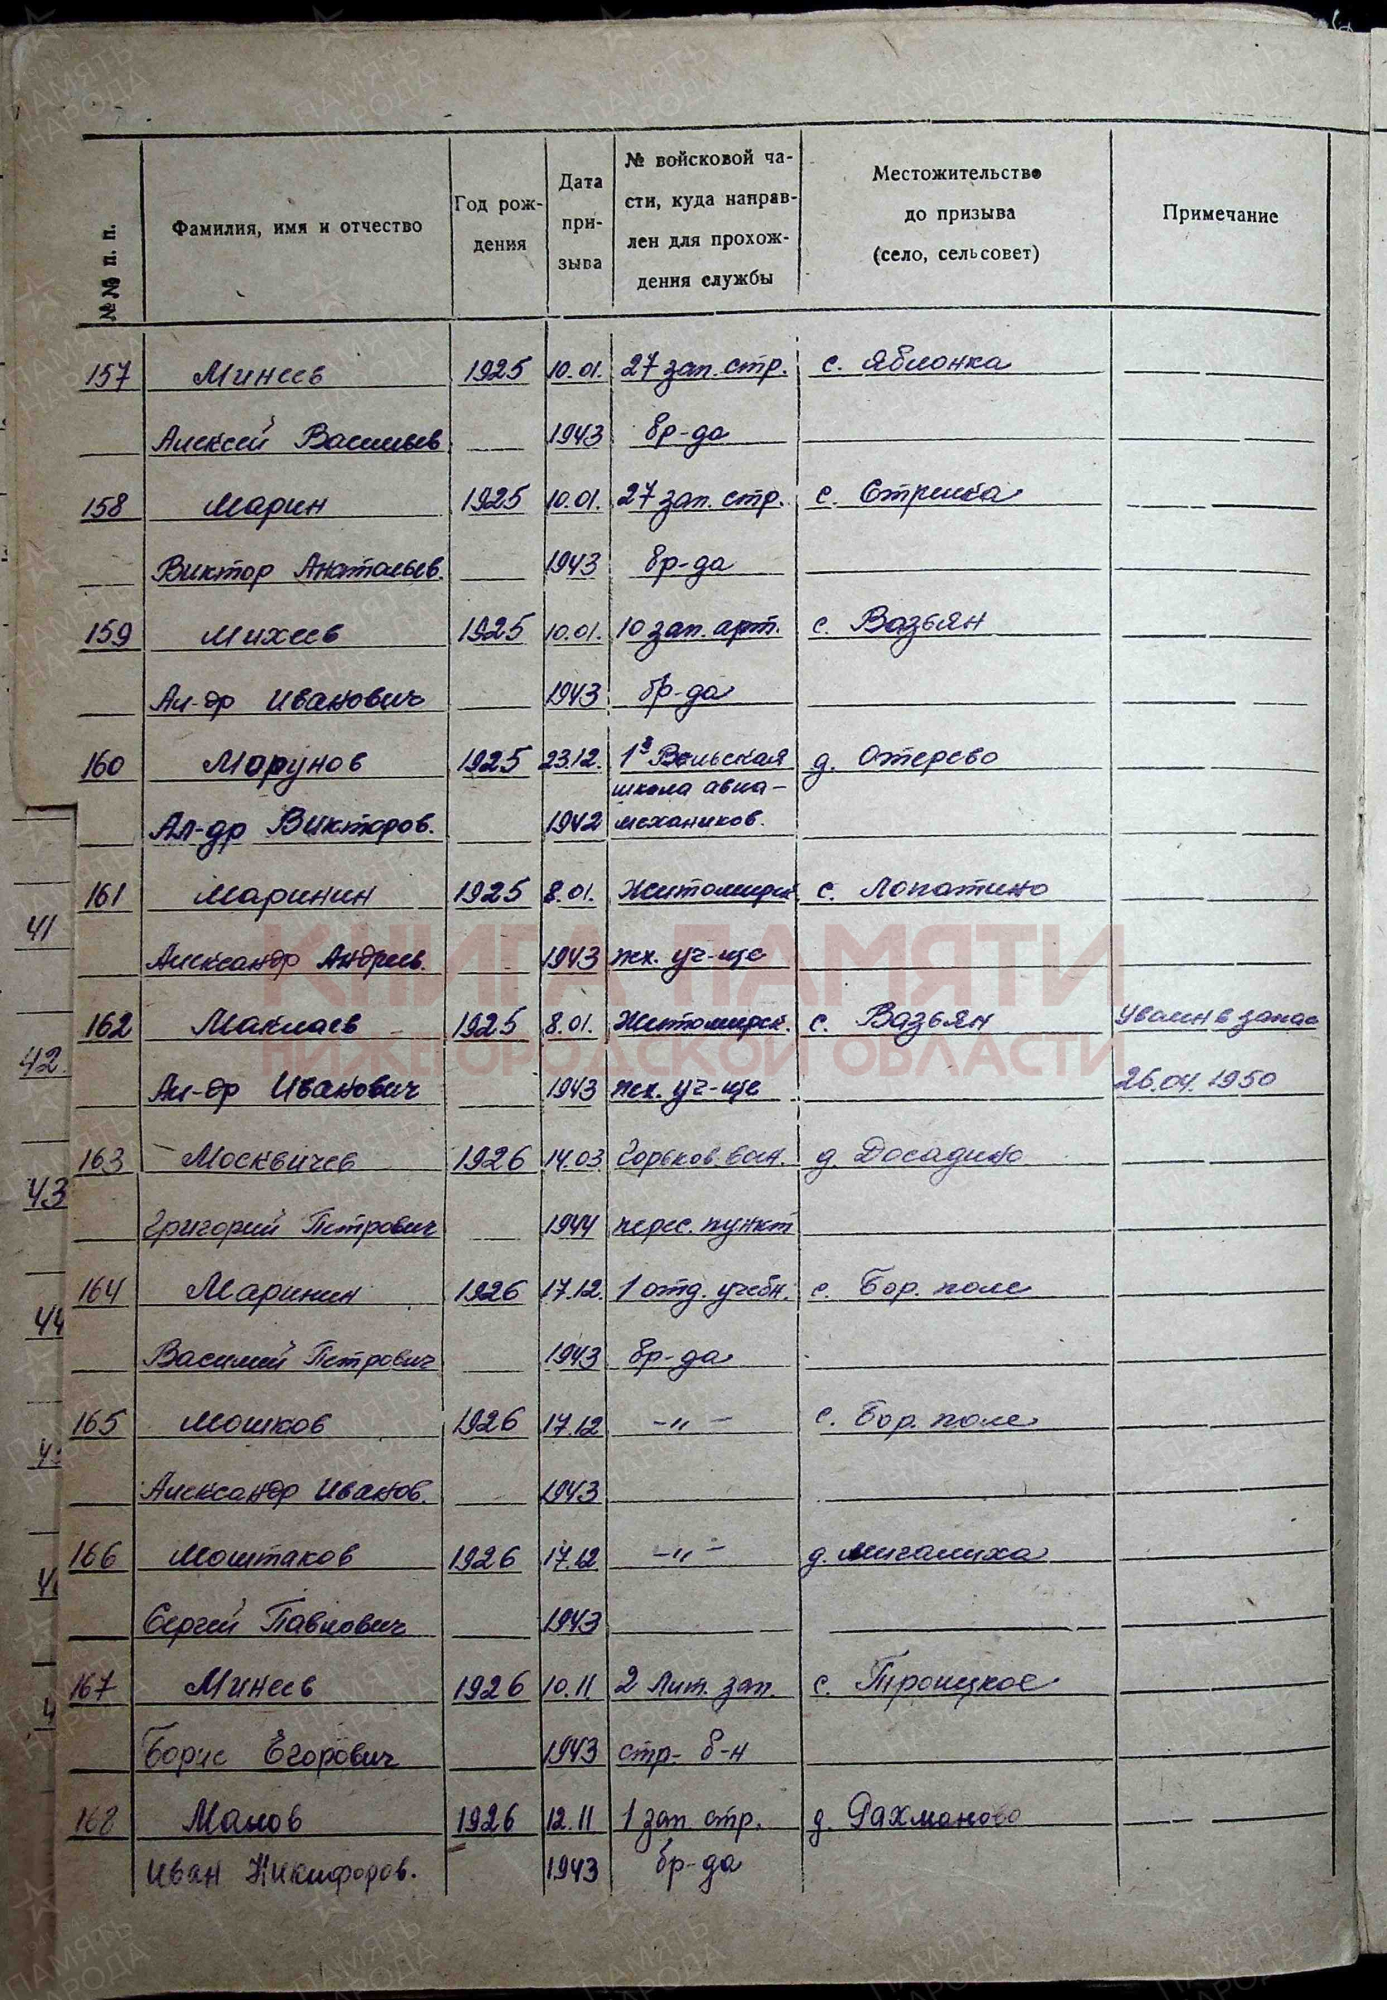 №№ п. п.
Фамилия, имя и отчество
Год рождения
Дата призыва
№ войсковой части, куда направлен для прохождения службы
Местожительство до призыва (село, сельсовет)
Примечание
157 Минеев 1925 10.01. 27 зап. стр. с. Яблонка
Алексей Васильев 1943 бр-да
158 Марин 1925 10.01. 27 зап. стр. с. Стрелка
Виктор Анатольев. 1943 бр-да
159 Михеев 1925 10.01. 10 зап. арт. с. Вазьян
Ал-др Иванович 1943 бр-да
160 Морунов 1925 23.12. 1я Вольская д. Отерево
школа авиа-
Ал-др Викторов. 1942 механиков.
161 Маринин 1925 8.01. Житомирск с. Лопатино
Александр Андреев. 1943 пех. уч-ще
162 Маклаев 1925 8.01. Житомирск. с. Вазьян Уволен в запас
Ал-др Иванович 1943 пех. уч-ще 26.04.1950
163 Москвичев 1926 14.03 Горьков. воен. д. Досадино
Григорий Петрович 1944 перес. пункт
164 Маринин 1926 17.12. 1 отд. учебн. с. Бор. поле
Василий Петрович 1943 бр-да
165 Мошков 1926 17.12 -"- с. Бор. поле
Александр Иванов. 1943
166 Моштаков 1926 17.12 -"- д. Мигалиха
Сергей Павлович 1943
167 Минеев 1926 10.11 2 Лит. зап. с. Троицкое
Борис Егорович 1943 стр- б-н
168 Малов 1926 12.11 1 зап стр. д. Рахманово
Иван Никифоров. 1943 бр-да
41
42.
43
44
КНИГА ПАМЯТИ
НИЖЕГОРОДСКОЙ ОБЛАСТИ
ПАМЯТЬ НАРОДА